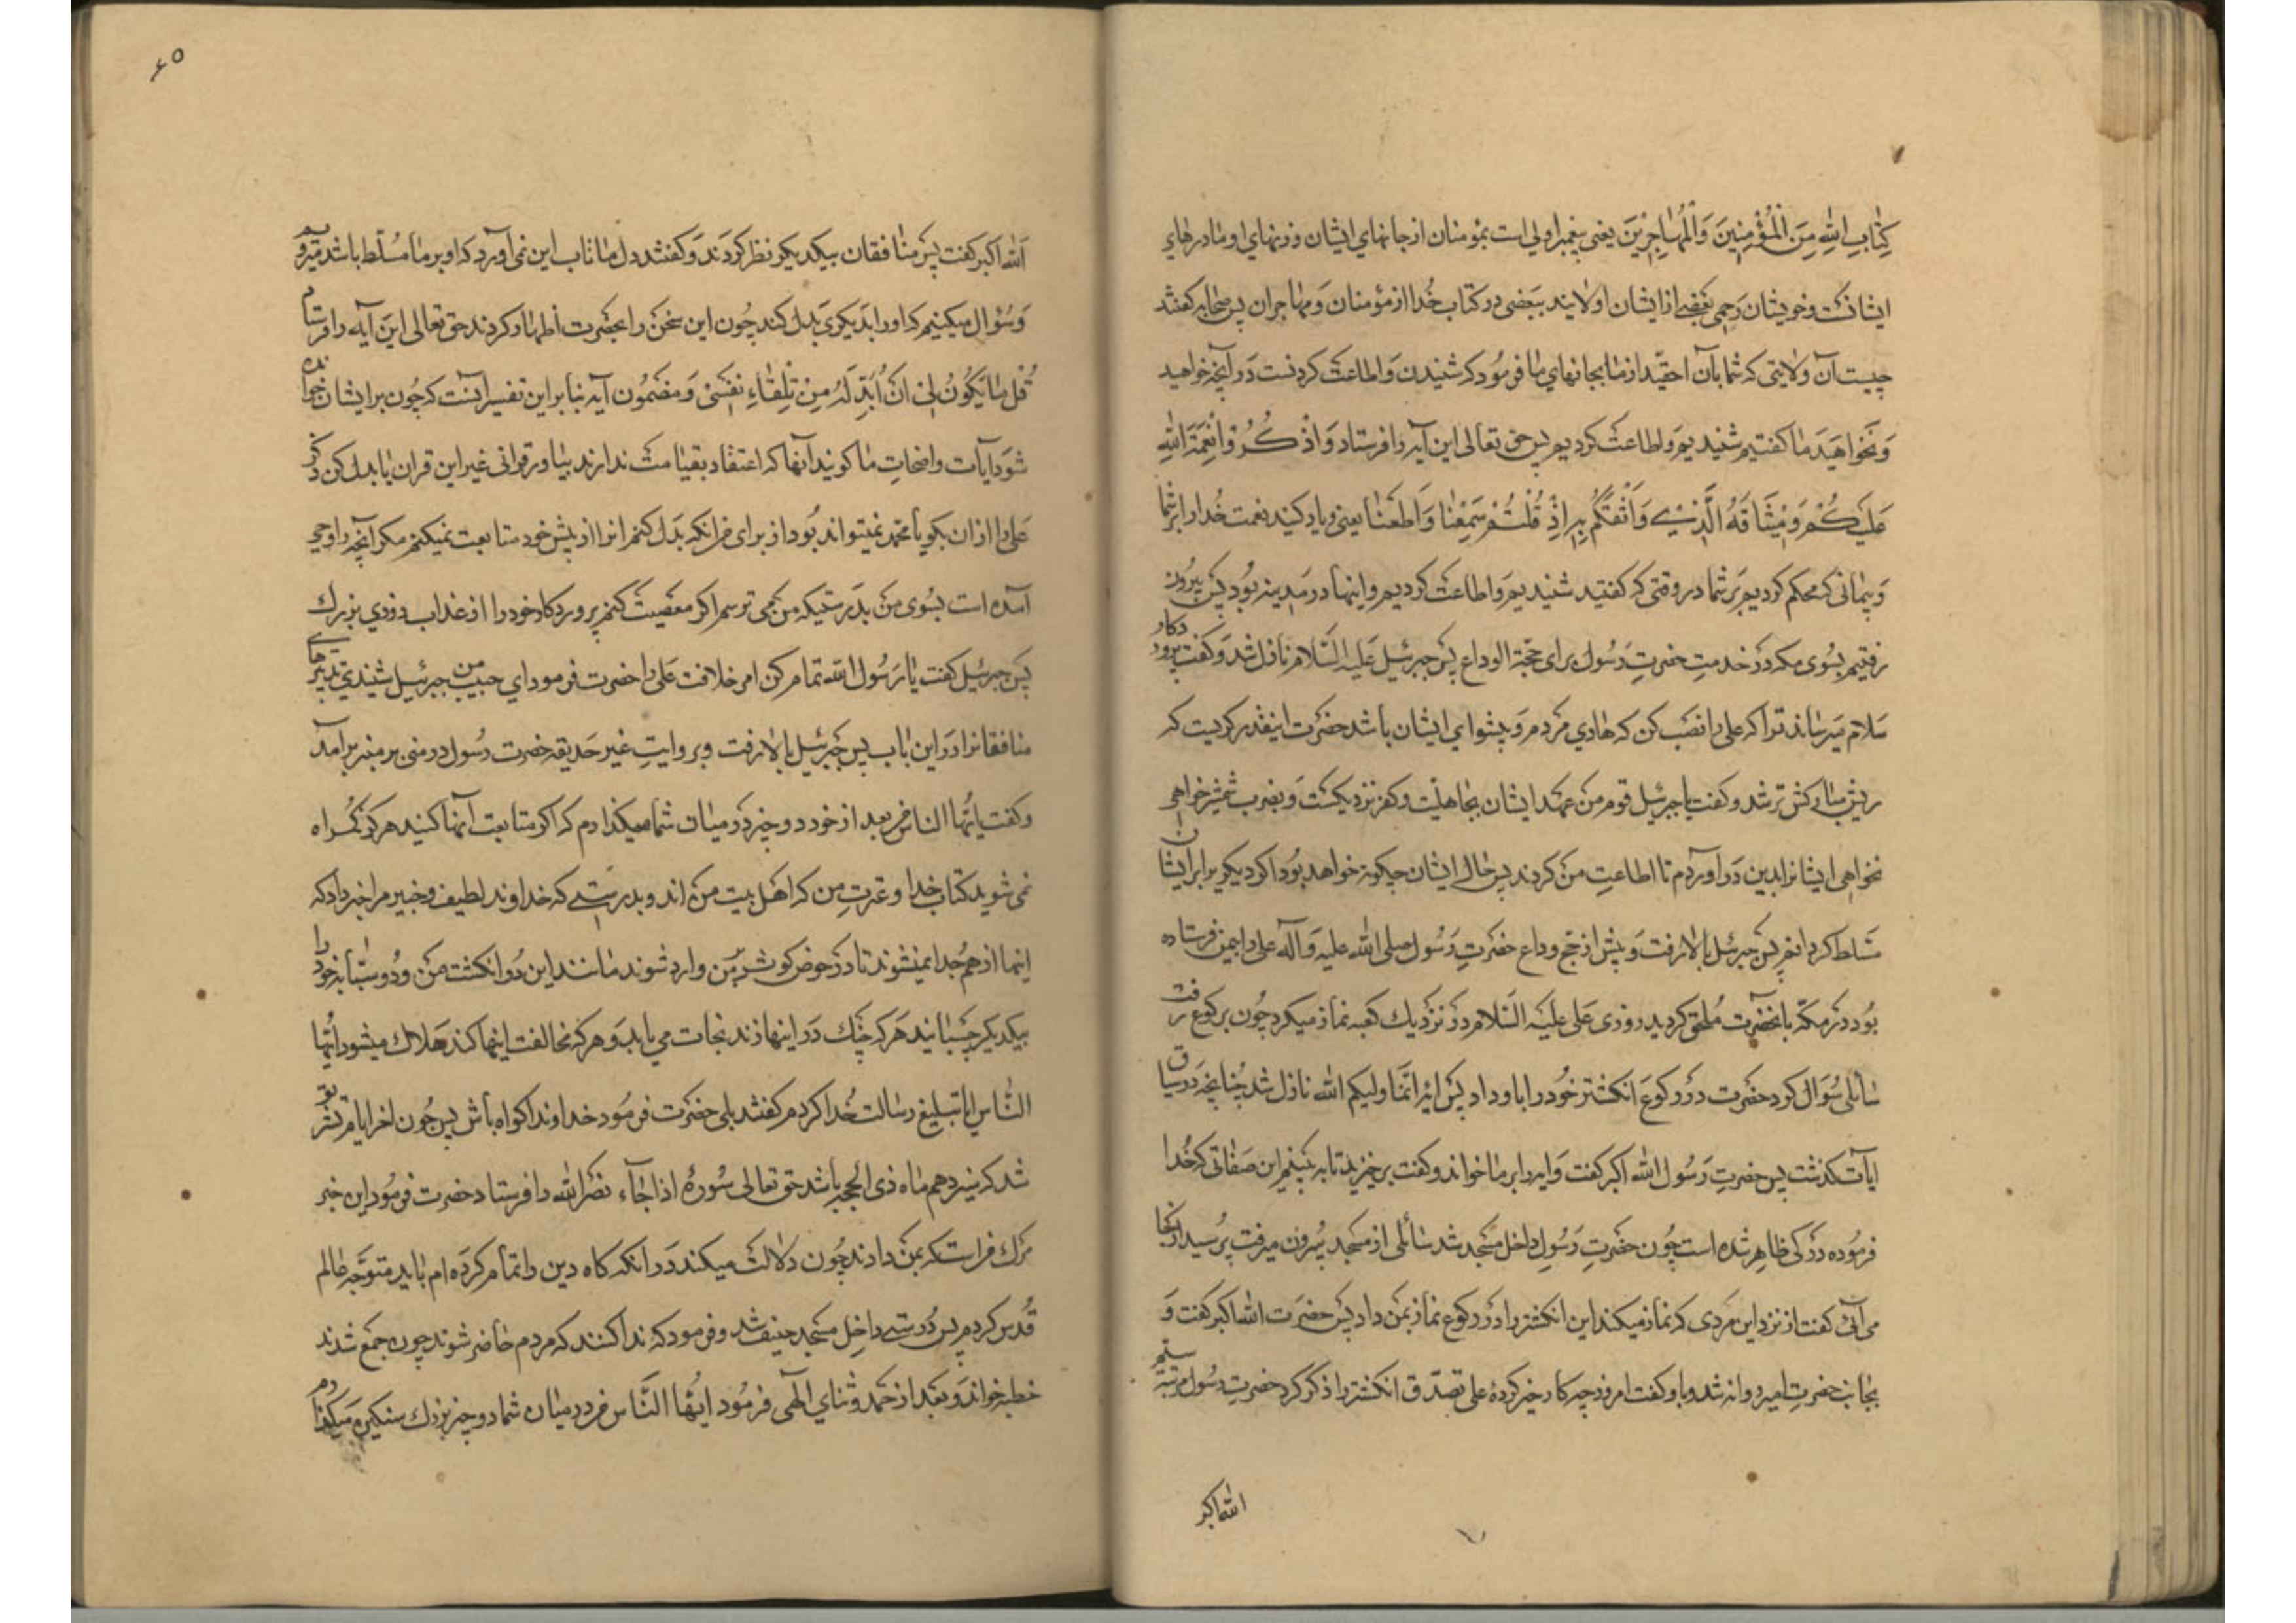 كِتٰابِ اللهِ مِنَ الْمُؤْمِنِينَ وَالْمُهٰاجِرِينَ یعنی پیغمبر اولی است بمؤمنان از جانهای ایشان و زنهای او مادرهای
ایشانند و خویشان رحمی بعضی از ایشان اولایند ببعضی در کتاب خُدا از مؤمنان وَ مهاجران پس صحابه کفتند
چیست آن ولایتی که شما بآن احقّید از ما بجانهای ما فرمُود که شنیدن وَ اطاعت کردنست دَر آنچه خواهید
وَ نخواهید ما کفتیم شنیدیم و اطاعت کردیم پس حق تعالی این آیه را فرستاد وَاذْكُرُوا نِعْمَةَ اللهِ
عَلَيْكُمْ وَمِيثٰاقَهُ الَّذِي وَاثَقَكُمْ بِهِ إِذْ قُلْتُمْ سَمِعْنٰا وَاَطَعْنٰا یعنی یاد کنید نعمت خُدا را بر شما
وَ پیمانی که محکم کردیم بَر شما در وقتی که کفتید شنیدیم وَ اطاعت کردیم و اینها در مَدینه بُود پس بیرون
رفتیم بسُوی مکه دَر خدمتِ حضرتِ رَسُول برای حجّة الوداع پس جبرئیل عَلَیه السَّلام نازل شد وَ کفت پرورد کار
سَلام میرساند ترا که علی را نصَب کن که هادی مَردم وَ پیشوای ایشان باشد حضرت اینقدر کریست که
ریش مبارکش تر شد و کفت یا جبرئیل قوم من عهد ایشان بجاهلیّت و کفر نزدیکست وَ بضرب شمشیر خواهی
نخواهی ایشانرا بدین دَر آوردم تا اطاعتِ من کردند پس حال ایشان چکونه خواهد بُود اکر دیکریرا بر ایشان
مسَلط کردانم پس جبرئیل بالا رفت وَ پیش از حجّ وداع حضرتِ رَسُول صلی الله علیه وَ آله علی را بیمن فرستاده
بُود در مکّه بآنحضرت مُلحق کردید روزی عَلی عَلیَه السَّلام در نزدیك کعبه نماز میکرد چون برکوع رفت
سٰائلی سُؤال کرد حضرت در رکوع انکشتر خُود را باو داد پس ایه انّما ولیکم الله نازل شد چُنانچه دَر سیاق
ایات کذشت پس حضرتِ رَسُول الله اکبر کفت وَ ایه را بر ما خواند و کفت برخیزید تا به بینیم این صفاتی که خُدا
فرمُوده در کی ظاهِر شده است چُون حضرتِ رَسُول داخل مسجد شد سٰائلی از مسجد بیرون میرفت پرسید از کجا
می آئی کفت از نزد این مَردی که نماز میکند این انکشتر را در رکوع نماز بمن داد پس حضرت الله اکبر کفت وَ
بجانب حضرتِ امیر روانه شد و باو کفت امروز چه کار خیر کردهٔ علی تصدّق انکشتر را ذکر کرد حضرت رسُول مرتبه سیّم
الله اکبر
٦٥
اَلله اکبر کفت پس منٰافقان بیکدیکر نظر کردَند وَ کفتند دل ما تاب این نمی آورد که او بر ما مُسلّط باشد میرویم
وَ سُؤال میکنیم که او را بدیکری بَدل کند چُون این سخن را بحضرت اظهار کردند حق تعالی این آیه را فرستاد
قُل مٰا یَکُونُ لِی اَنْ اُبَدِّلَهُ مِنْ تِلْقٰاءِ نَفْسِی وَ مضمُون آیه بنا بر این تفسیر آنست که چُون بر ایشان خوانده
شوَد ایات واضحاتِ ما کویند آنها که اعتقاد بقیامت ندارند بیاور قرانی غیر این قران یا بدل کن ذکر
عَلی را از ان بکو یا محمّد نمیتواند بُود از برای من انکه بَدل کنم انرا از پیش خود متابعت نمیکنم مکر آنچه را وحی
آمده است بسُوی من بدَرستیکه من می ترسم اکر معَصیت کنم پروردکار خود را از عذاب روزی بزرك
پس جبرئیل کفت یا رسُول الله تمام کن امر خلافت عَلی را حضرت فرمود ای حبیب من جبرئیل شنیدی تدبیرهای
منافقانرا دَر این باب پس جبرئیل بالا رفت و بروایتِ غیر حَذیفه حضرت رسُول در منی بر منبر برآمد
وَ کفت یا ایّها الناس من بعد از خود دو چیز در میان شما میکذارم که اکر متابعت آنها کنید هرکز کمراه
نمی شوید کتاب خدا و عترتِ من که اهَل بیت من اند و بدرستی که خداوند لطیف و خبیر مرا خبر داد که
اینها از هم جدا نمیشوند تا در حوض کوثر بر من وارد شوند مانند این دُو انکشت من و دُو سبّابه خود را
بیکدیکر چسبانید هَر که چنك دَر اینها زند نجات می یابد وَ هر که مخالفت اینها کند هَلاك میشود ایُّها
النّٰاس ایا تبلیغ رسالت خُدا کردم کفتند بلی حضرت فرمُود خداوندا کواه باش پس چون اخر ایام تشریق
شد که سیزدهم ماه ذی الحجّه باشد حق تعالی سُورهٔ اذا جٰاءَ نصَرُ الله را فرستاد حضرت فرمُود این خبر
مَرك من است که بمَن دادند چُون دلالت میکند دَر آنکه کاه دین را تمام کرَده ام باید متوجّه عالم
قُدس کردم پس در ستی داخل مسَجد خیف شد وَ فرمود که ندا کنند که مردم حٰاضر شوند چون جمَع شدند
خطبه خواند وَ بعَد از حمَد و ثنای الٓهی فرمُود ایُّهَا النّاس من در میان شما دو چیز بزرك سنکین میکذارم